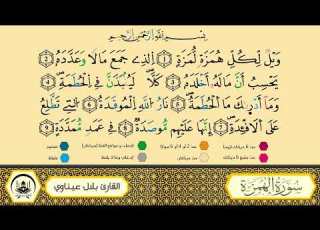 بِسْمِ اللَّهِ الرَّحْمَٰنِ الرَّحِيمِ
وَيْلٌ لِّكُلِّ هُمَزَةٍ لُّمَزَةٍ ۝١ الَّذِي جَمَعَ مَالًا وَعَدَّدَهُ ۝٢
يَحْسَبُ أَنَّ مَالَهُ أَخْلَدَهُ ۝٣ كَلَّا ۖ لَيُنبَذَنَّ فِي الْحُطَمَةِ ۝٤
وَمَا أَدْرَاكَ مَا الْحُطَمَةُ ۝٥ نَارُ اللَّهِ الْمُوقَدَةُ ۝٦ الَّتِي تَطَّلِعُ
عَلَى الْأَفْئِدَةِ ۝٧ إِنَّهَا عَلَيْهِم مُّؤْصَدَةٌ ۝٨ فِي عَمَدٍ مُّمَدَّدَةٍ ۝٩
سُورَةُ الهُمَزَة
القارئ بلال عيناوي